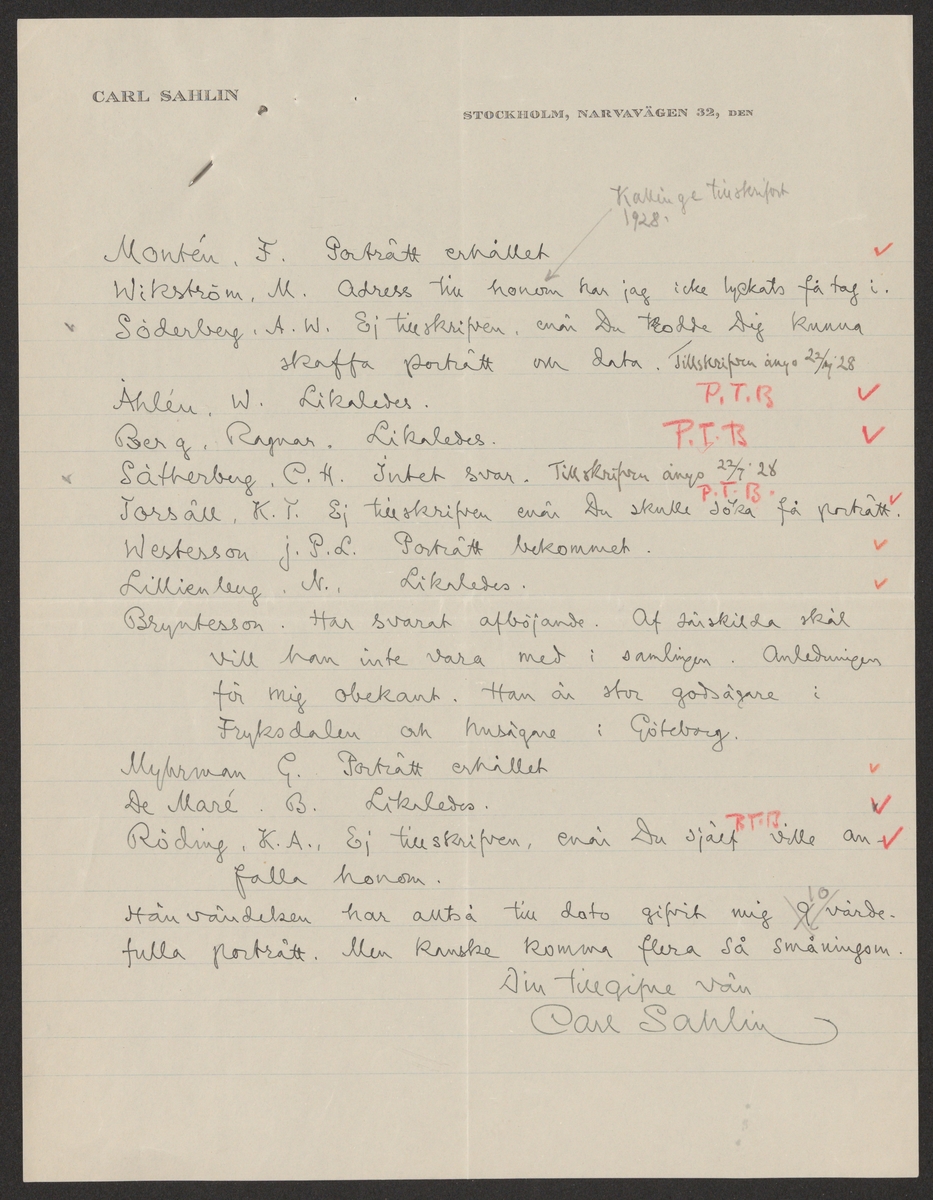 CARL SAHLIN
STOCKHOLM, NARVAVÄGEN 32, DEN
Kallinge tillskrifvit
1928.
Montén, F. Porträtt erhållet ✓
Wikström, M. Adress till honom har jag icke lyckats få tag i.
Söderberg, A. W. Ej tillskrifven, enär Du trodde Dig kunna
skaffa porträtt och data. Tillskrifven ånyo 28
Åhlén, W. Likaledes. P.T.B ✓
Berg, Ragnar. Likaledes. P.T.B ✓
Sätherberg, C. H. Intet svar. Tillskrifven ånyo 28
P.T.B.
Torsäll, K. T. Ej tillskrifven enär Du skulle söka få porträtt. ✓
Westesson j. P.L. Porträtt bekommet. ✓
Lillienberg, N., Likaledes. ✓
Bryntesson. Har svarat afböjande. Af särskilda skäl
vill han inte vara med i samlingen. Anledningen
för mig obekant. Han är stor godsägare i
Fryksdalen och husägare i Göteborg.
Myhrman G. Porträtt erhållet ✓
De Maré. B. Likaledes. ✓
P.T.B.
Röding, K.A., Ej tillskrifven, enär Du själf ville an- ✓
falla honom.
10
Hänvändelsen har alltså till dato gifvit mig 9 värde-
fulla porträtt. Men kanske komma flera så småningom.
Din tillgifne vän
Carl Sahlin